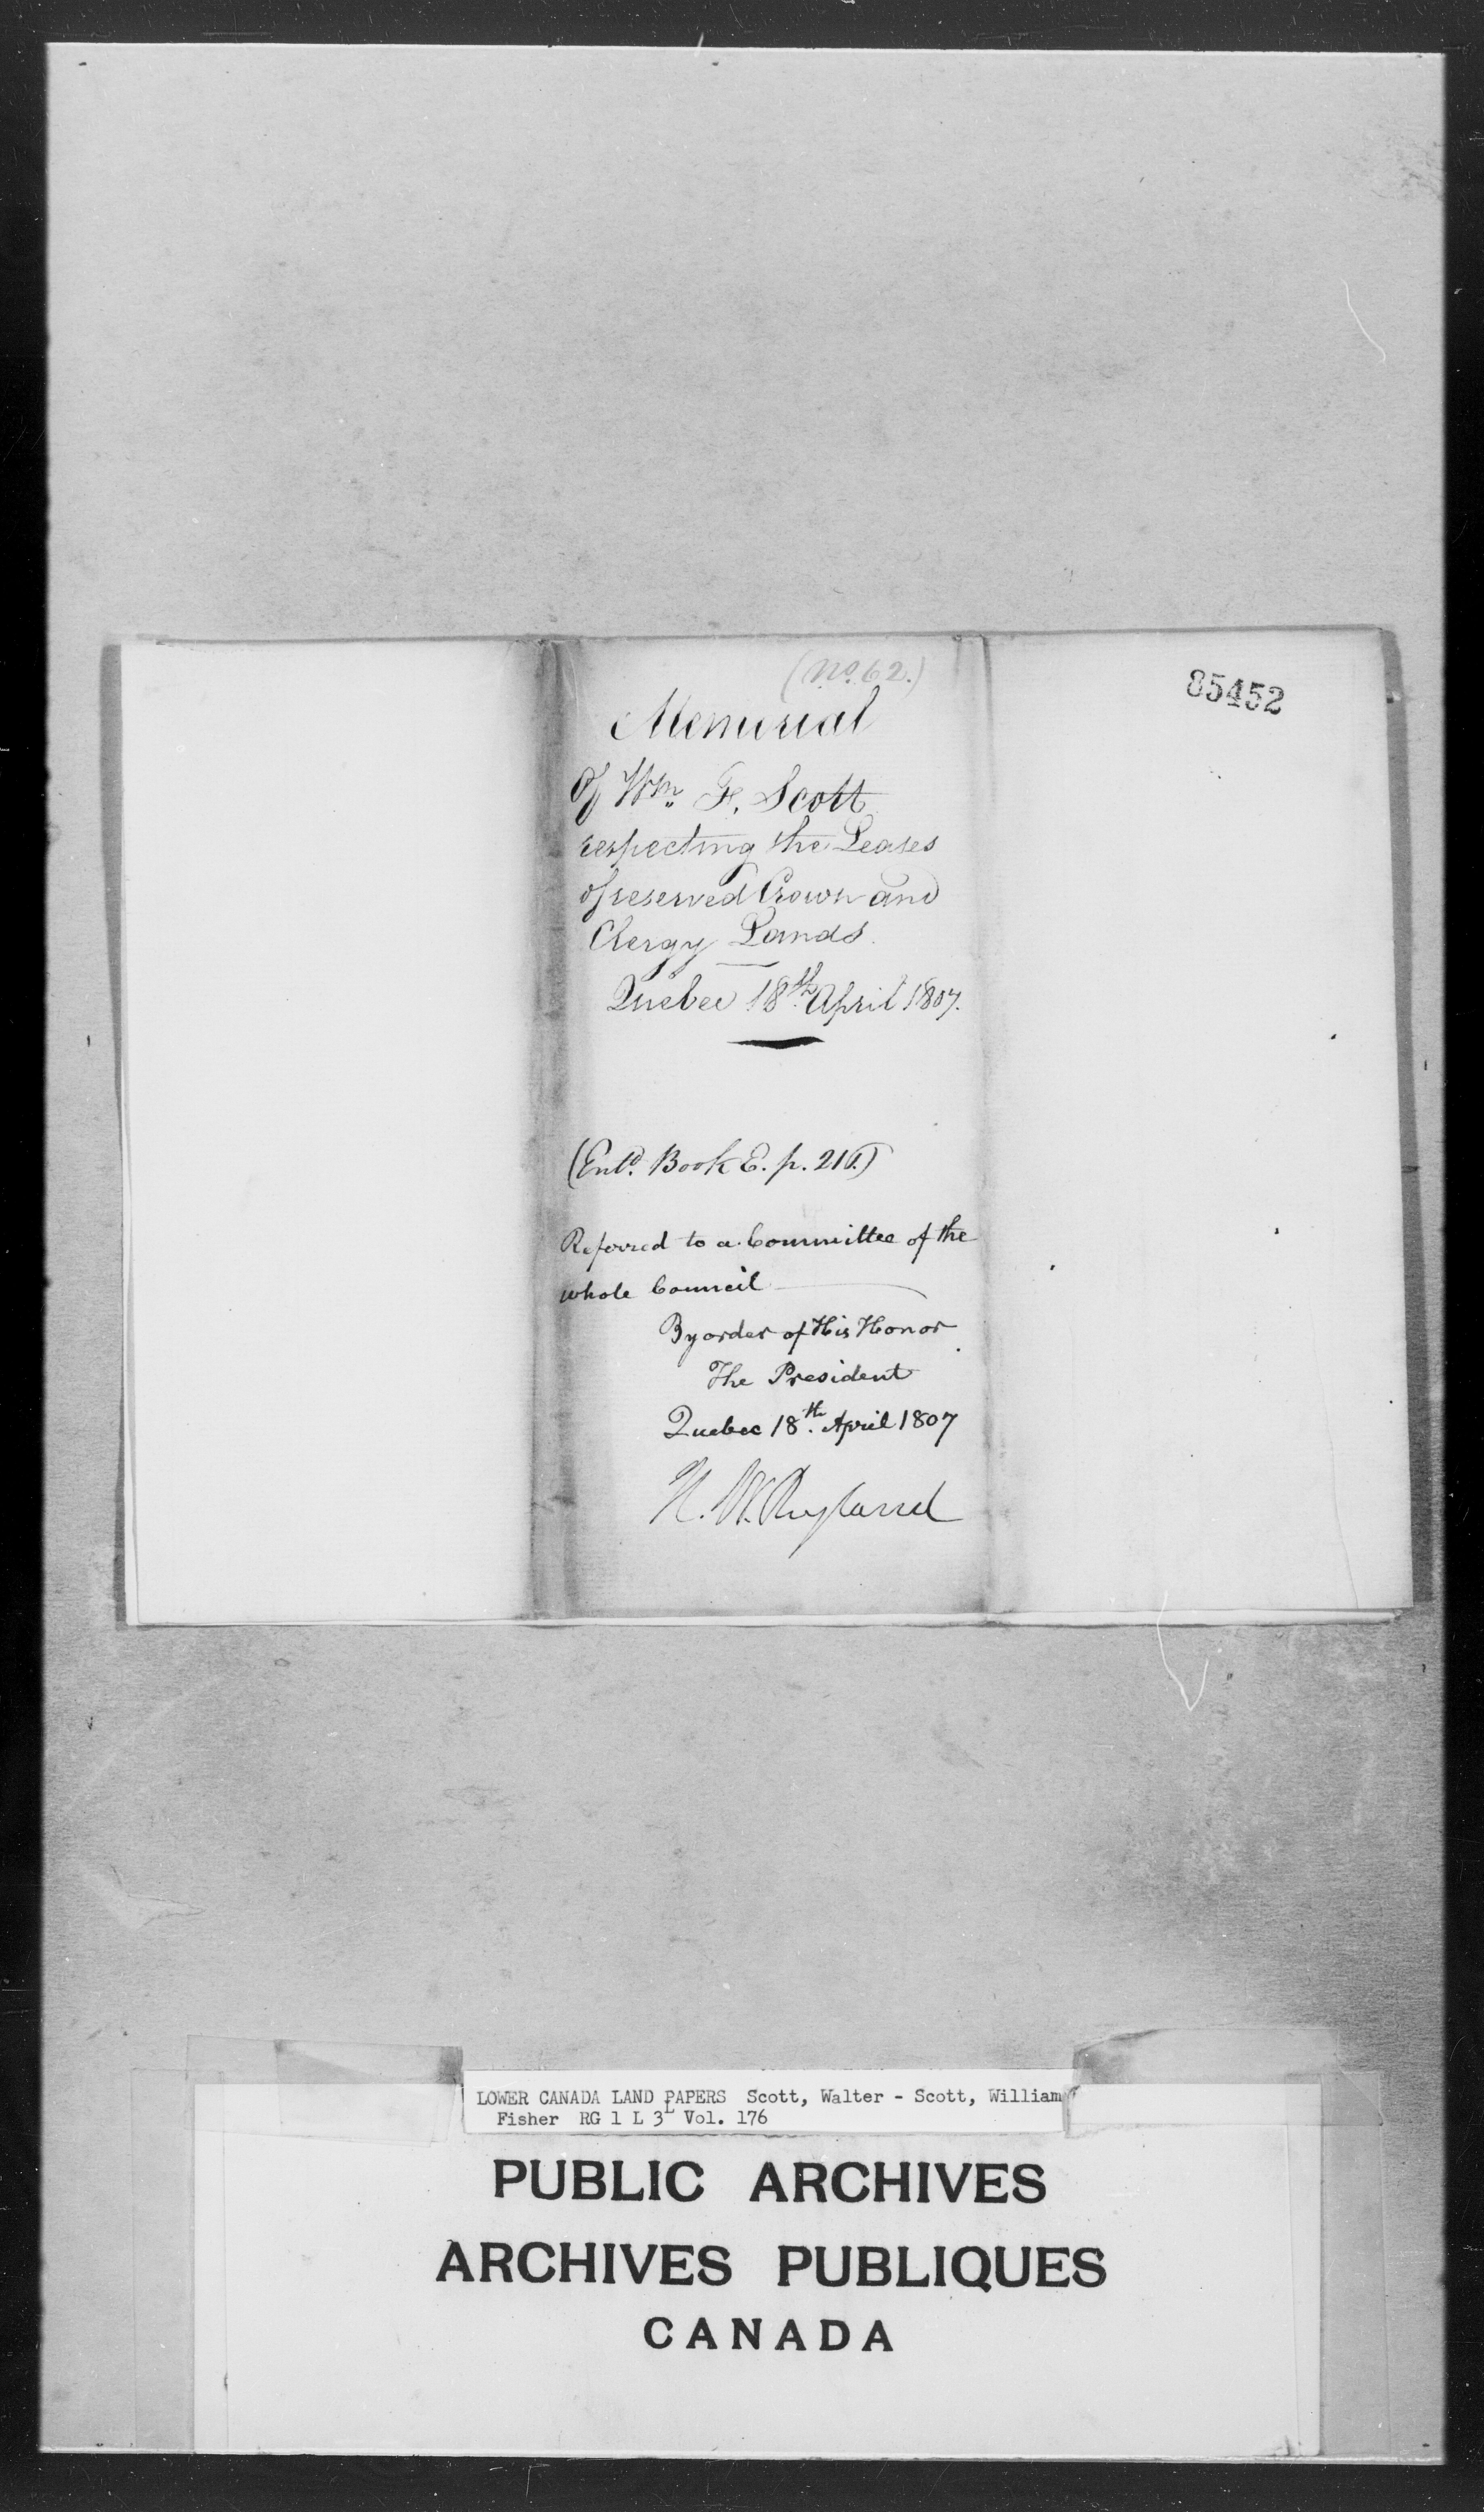 (No. 62.)
85452
Memorial
Of Wm. F. Scott
respecting the Leases
of reserved Crown and
Clergy Lands.
Quebec 18th April 1807.
(Entd. Book E. p. 216.)
Referred to a Committee of the
whole Council
By order of His Honor
The President
Quebec 18th. April 1807
H. W. Ryland
LOWER CANADA LAND PAPERS Scott, Walter - Scott, William
Fisher RG 1 L 3L Vol. 176
PUBLIC ARCHIVES
ARCHIVES PUBLIQUES
CANADA